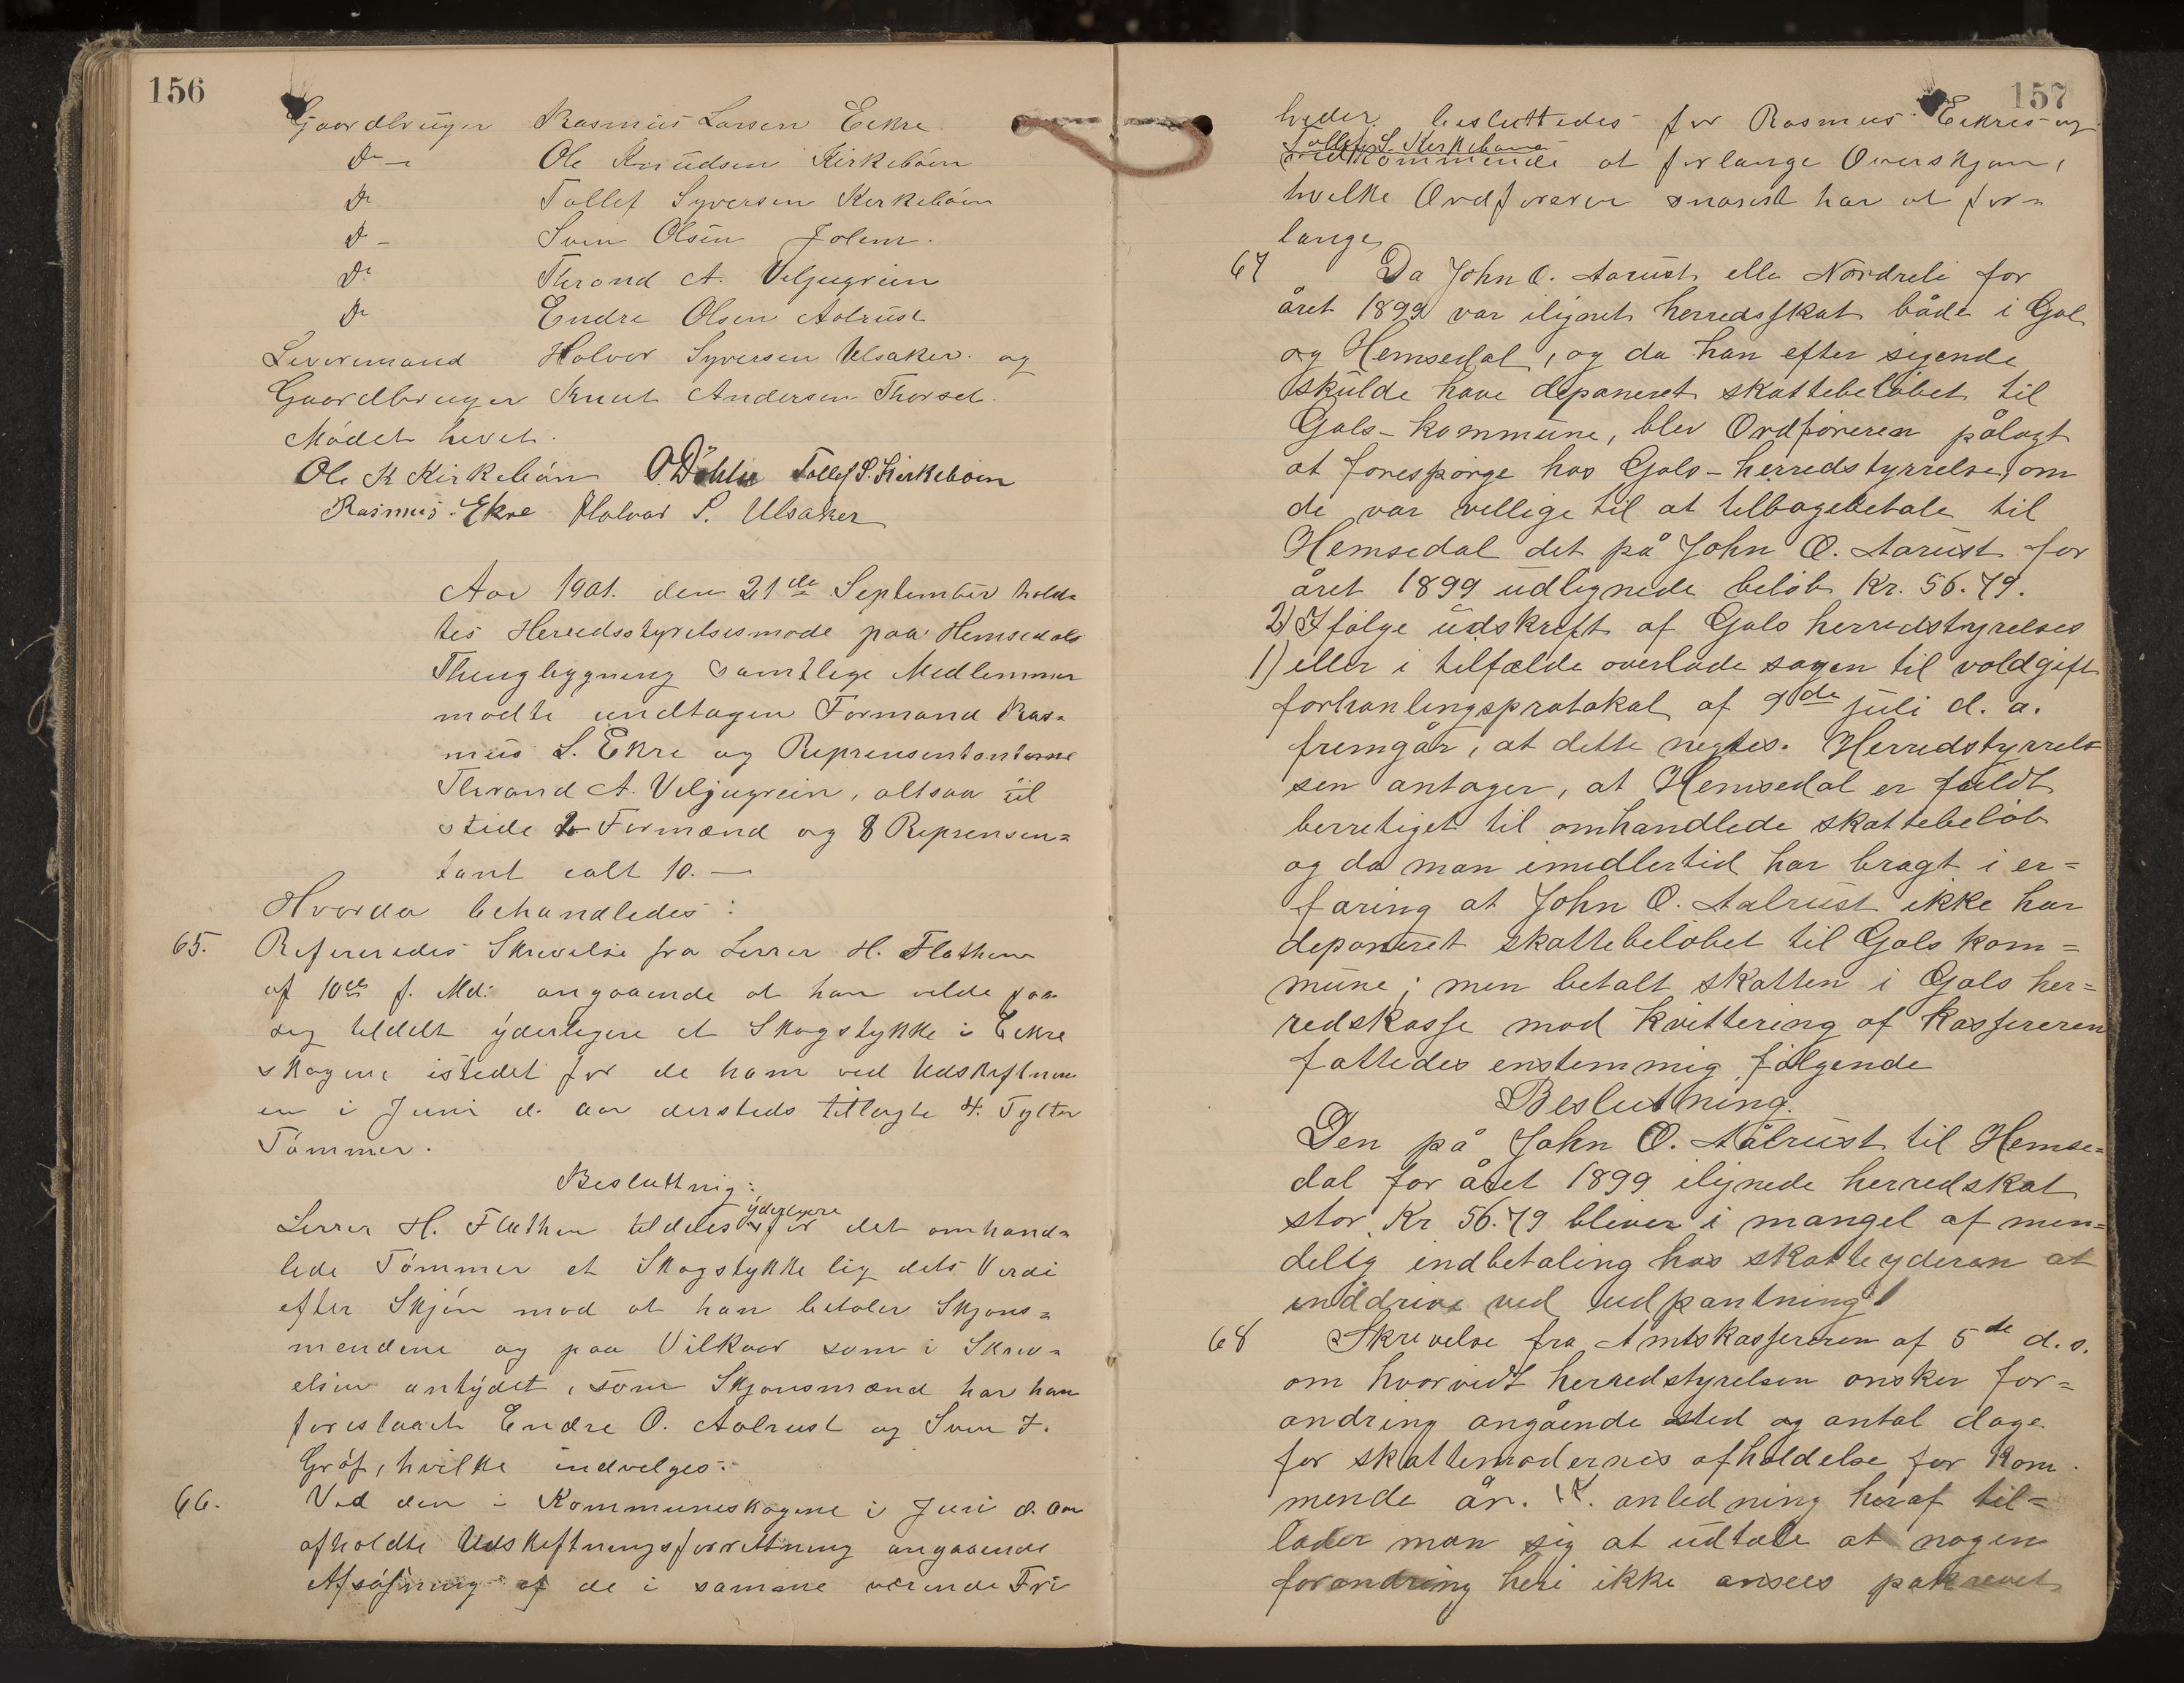 156
Gaardbruger Rasmus Larsen Eekre
Do — Ole Knudsen Kirkebøen
Do Tollef Syversen Kirkebøen
Do — Svein Olsen Jolem.
Do Thrond A. Veljugrein
Do Endre Olsen Aalrust
Leversmand Halvor Syversen Ulsaker. og
Gaardbruger Knut Andersen Thorset.
Mødet hevet.
Ole K Kirkebøen O. Døhlen Tollef S. Kirkeboen
Rasmus. Ekre Halvor S. Ulsaker
Aar 1901. den 21de September hold-
tes Herredsstyrelsesmøde paa Hemsedals
Thingbygning Samtlige Medlemmer
mødte undtagen Formand Ras-
mus L. Ekre og Reprensentanterne
Thrond A. Veljugrein, altsaa til
stede 2 Formænd og 8 Reprensen-
tant ialt 10. —
Hvorda behandledes:
65. Refereredes Skrivelse fra Lærer H. Flathen
af 10de f. Md. angaaende at han vilde faa
sig tildelt yderligere et Skogstykke i Eekre
skogene istedet for de ham ved Udskiftnin
en i Juni d. aar dersteds tillagte 4. Tylter
Tømmer.
Besluttnig:
yderligere
Lærer H. Flathen tildeles for det omhand-
lede Tømmer et Skogstykke lig dets Verdi
efter Skjøn mod at han betaler Skjøns-
mendene og paa Vilkaar som i Skriv-
elsen antydet, som Skjønsmænd har han
foreslaaet Endre O. Aalrust og Svein T.
Grøf, hvilke indvelges.
66. Ved den i Kommuneskogene i Juni d. aar
afholdte Udskiftningsforrettning angaaende
Afsøfning af de i samme værende Fri
157
heder, besluttedes for Rasmus Eekres og
Tollef S. Kirkebøens
vedkommende at forlange Overskjøn,
hvilke Ordføreren snarest har at for-
lange,
67 Da John O. Aarust elle Nordreli for
året 1899 var ilignet herredsskat både i Gol
og Hemsedal, og da han efter sigende
skulde have deponeret skattebeløbet til
Gols-kommune, blev Ordføreren pålagt
at forespørge hos Gols-herredstyrrelse, om
de var vellige til at tilbagebetale til
Hemsedal det på John O. Aarust for
året 1899 udlignede beløb Kr. 56.79.
2) Ifølge udskrift af Gols herredstyrelses
1) eller i tilfælde overlade sagen til voldgift
forhanlingsprotokol af 9de juli d. a.
fremgår, at dette negtes. Herredstyrrel-
sen antager, at Hemsedal er fuldt
berretiget til omhandlede skattebeløb
og da man imidlertid har bragt i er=
faring at John O. Aalrust ikke har
deponeret skattebeløbet til Gols kom=
mune; men betalt skatten i Gols her=
redskasse mod kvittering af kassereren
fattedes enstemmig følgende
Beslutning.
Den på John O. Aalrust til Hemse=
dal for året 1899 ilignede herredskat
stor Kr 56.79 bliver i mangel af min=
delig indbetaling hos skatteyderen at
inddrive ved udpantning!
68 Skrivelse fra Amtskassereren af 5de d.s.
om hvorvidt herredstyrelsen ønsker for=
andring angående sted og antal dage
for skattemødernes afholdelse for kom
mende år. I anledning heraf til=
lader man sig at udtale at nogen
forandring heri ikke ansees påkrævet